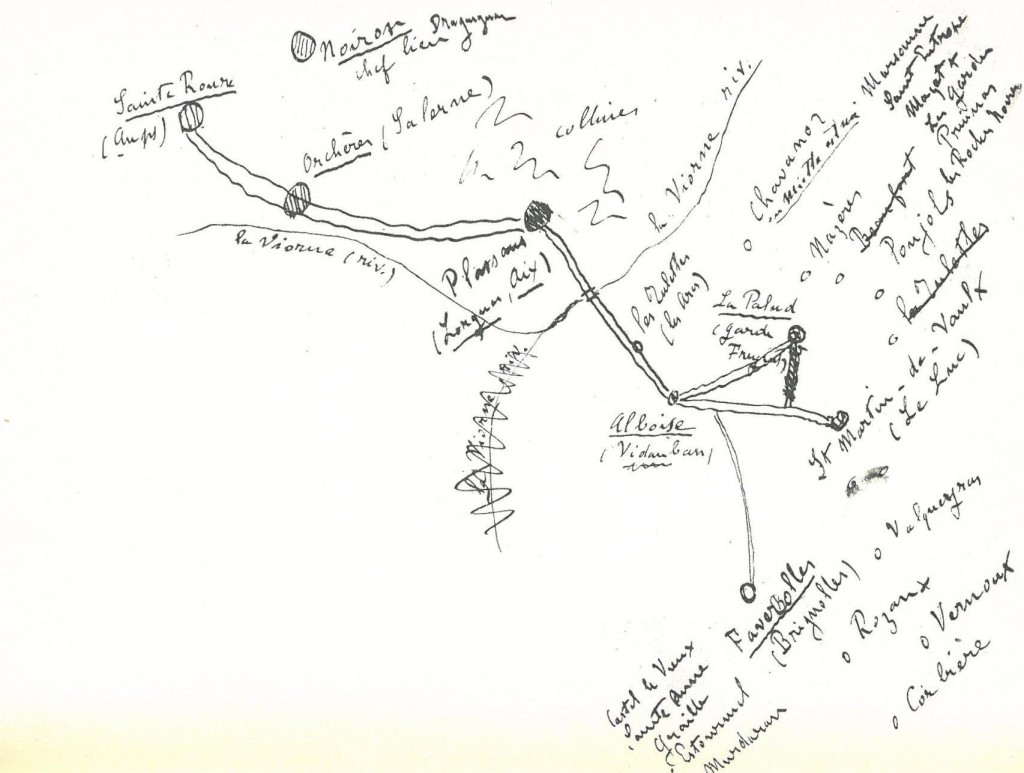 Noiron Draguignan
chef lieu
Sainte Roure
(Aups)
Orchères (Salerne)
collines
la Viorne riv.
la Viorne (riv.)
Plassans
(Lorgues, Aix)
les Tulettes
(les Arcs)
La Palud
(Garde
Freinet)
Alboise
(Vidauban)
St Martin-de-Vaulx
(Le Luc)
Faverolles
(Brignolles)
Chavanoz
Mazères
Beaumont
Poujols
les Tulettes
Marsanne
Saint Eutrope
Les Gardes
Pruinas
Roches Noires
Valqueyras
Rozans
Vernoux
Corbière
Castel le Vieux
Sainte Anne
Graille
Estourmel
Murdaran